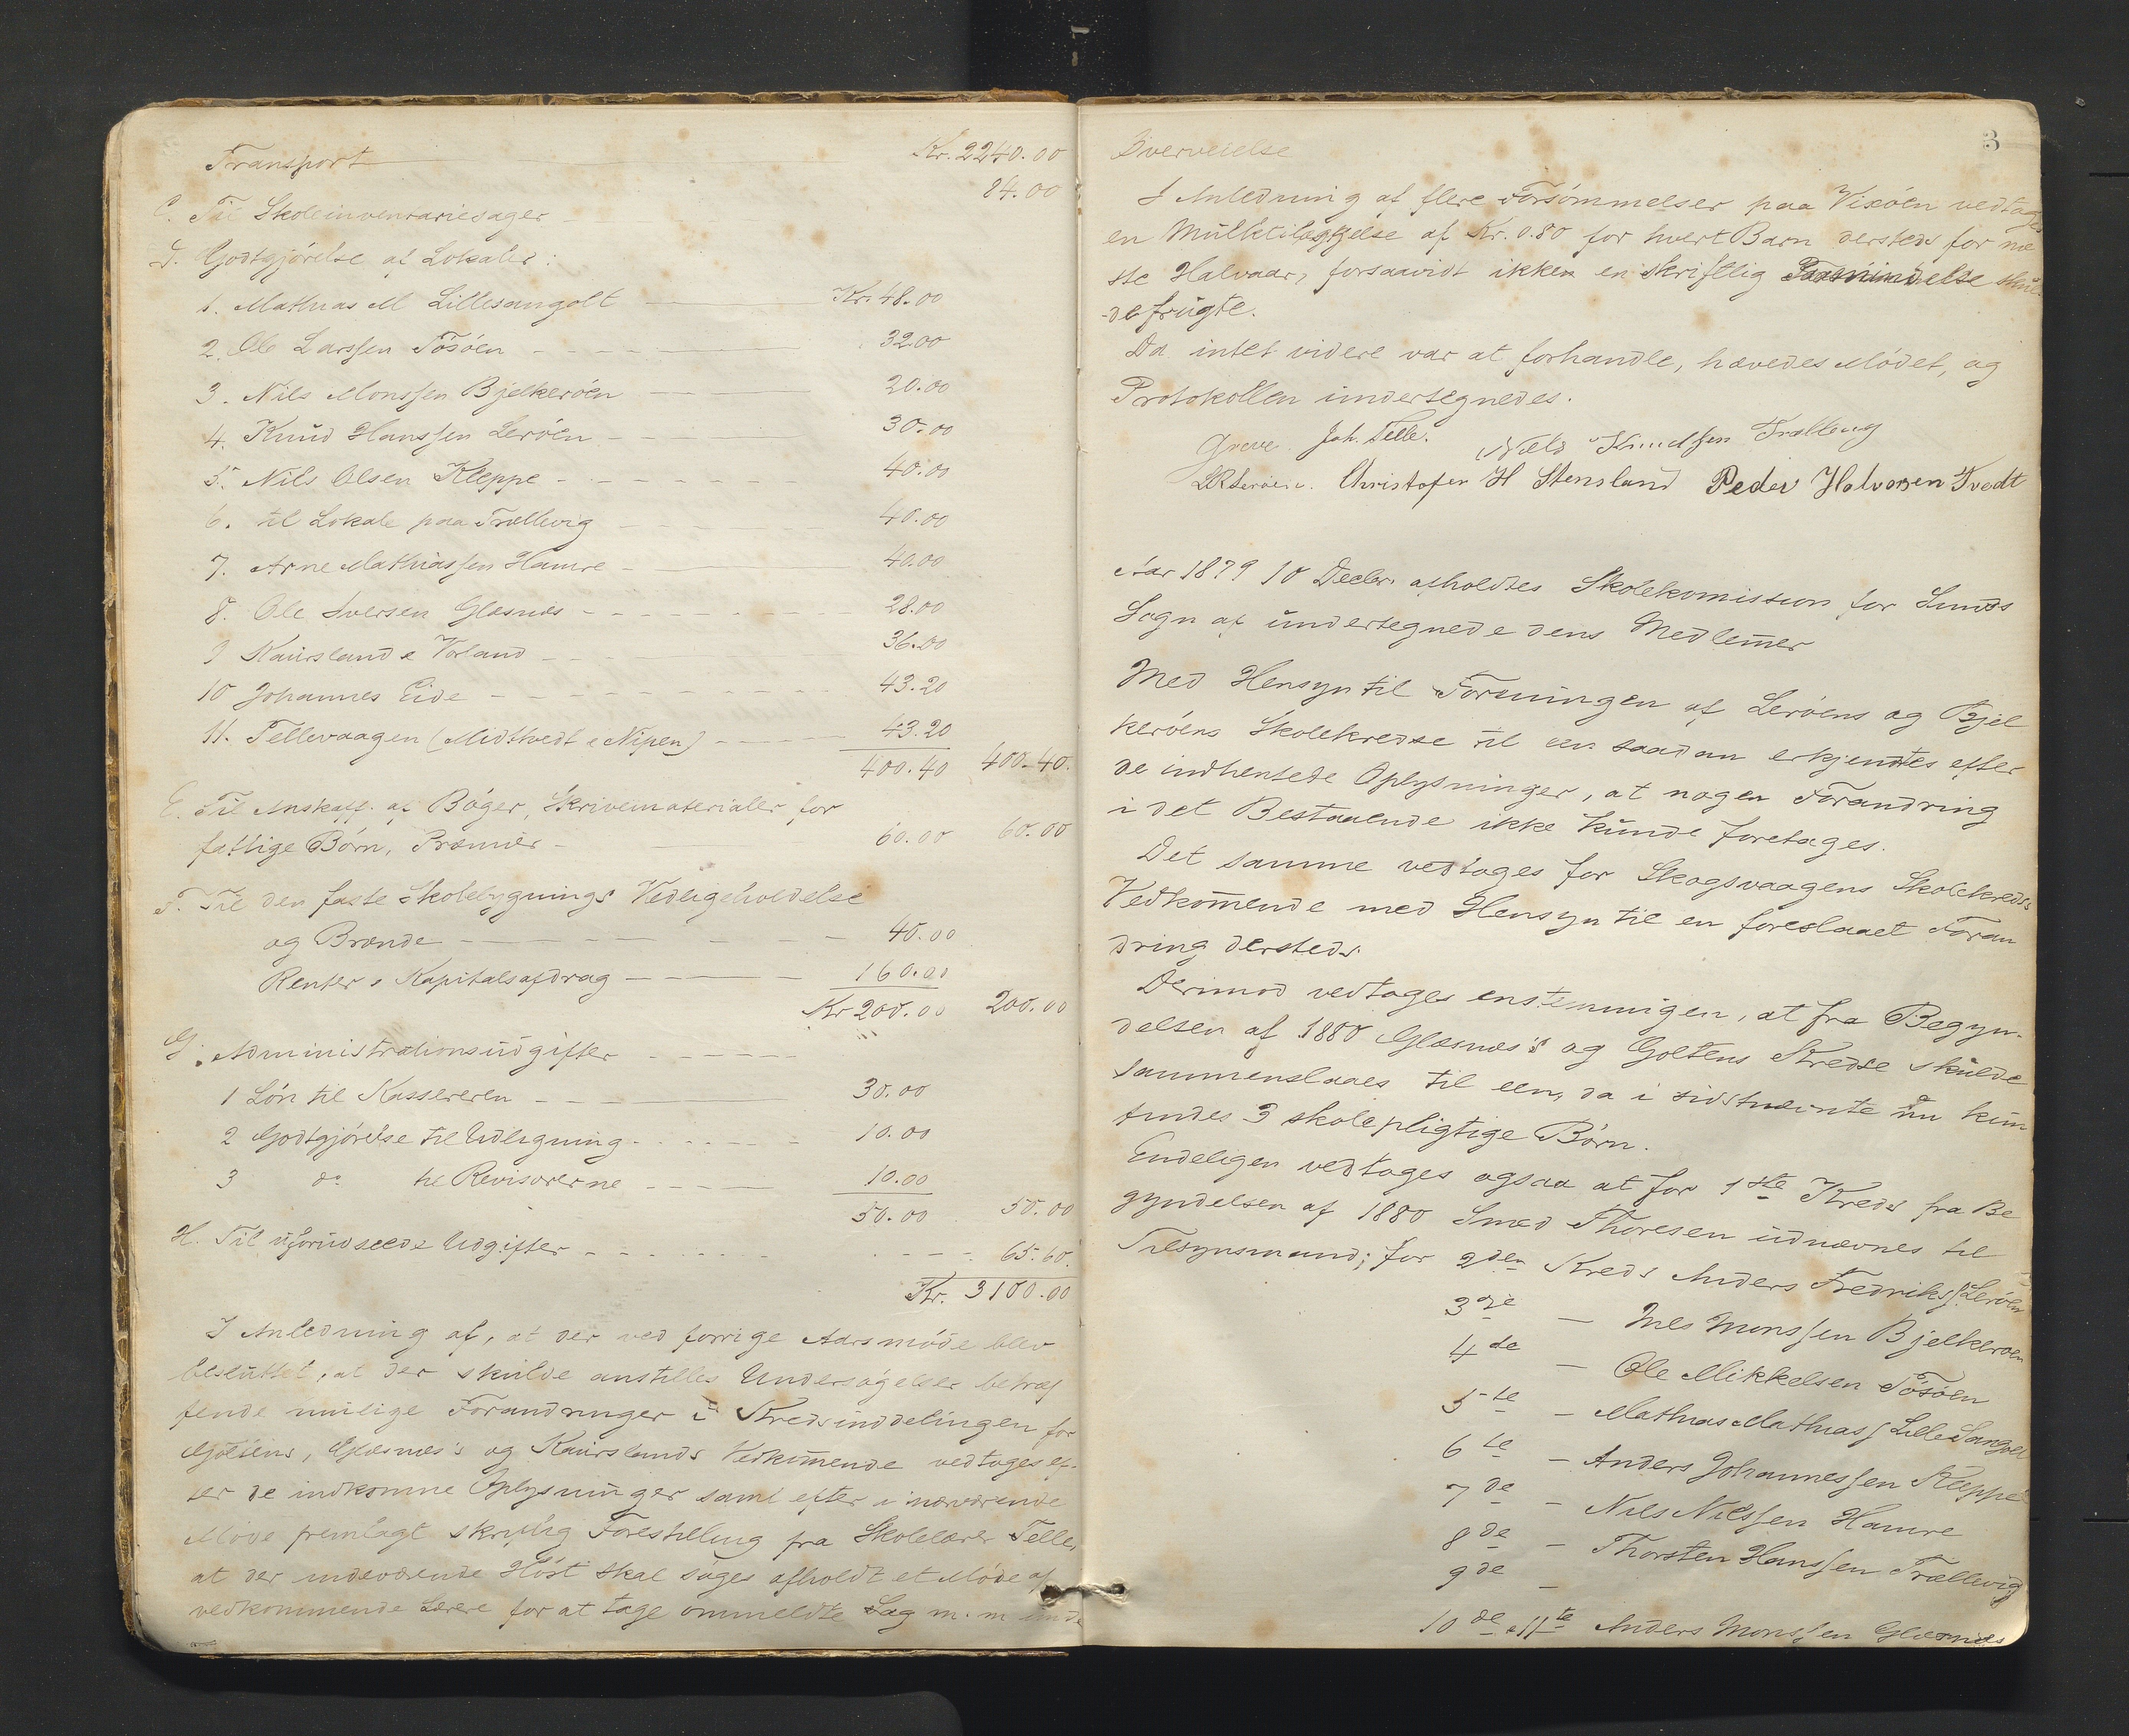 Transport Kr. 2240.00
C. Til Skoleinventariesager 84.00
D. Godtgjörelse af Lokaler:
1. Mathias M Lillesangolt Kr. 48.00
2. Ole Larssen Tösöen 32.00
3. Nils Monssen Bjelkeröen 20.00
4. Knud Hanssen Leröen 30.00
5. Nils Olsen Kleppe 40.00
6. til Lokale paa Trællevig 40.00
7. Arne Mathiassen Hamre 40.00
8. Ole Iversen Glæsnæs 28.00
9 Kaursland & Vorland 36.00
10 Johannes Eide 43.20
11. Tellevaagen (Midttvedt & Nipen) 43.20
400.40 400.40.
E. Til Anskaff. af Böger, Skrivematerialer for
fattige Börn, Præmier 60.00 60.00
F. Til den faste Skolebygnings Vedligeholdelse
og Brænde 40.00
Renter & Kapitalsafdrag 160.00
Kr 200.00 200.00
G. Administrationsudgifter
1 Lön til Kassereren 30.00
2 Godtgjörelse til Udligning 10.00
3 do til Revisorerne 10.00
50.00 50.00
H. Til uforudseede Udgifter 65.60.
Kr. 3100.00
I Anledning af, at der ved forrige Aarsmöde blev
besluttet, at der skulde anstilles Undersögelser betræf
fende mulige Forandringer i Kredsinddelingen for
Goltens, Glæsnæs's og Kaurslands Vedkommende vedtoges ef-
ter de indkomne Oplysninger samt efter i nærværende
Möde fremlagt skriftlig Forestilling fra Skolelærer Telle,
at der indeværende Höst skal söges afholdt et Möde af
vedkommende Lærere for at tage ommeldte Sag m. m unde
3
Överveielse
I Anledning af flere Forsömmelser paa Vixöen vedtoges
en Mulktilæggelse af Kr. 0.80 for hvert Barn dersteds for næ
ste Halvaar, forsaavidt ikke en skriftlig skul-
de frugte.
Da intet videre var at forhandle, hævedes Mödet, og
Protokollen undertegnedes.
Greve. Joh. Telle. Niels Knudssen Trællevig
LRLeröen. Christofer H Stensland Peder Halvorsen Tvedt
Aar 1879 10 Decbr. afholdtes Skolekomission for Sunds
Sogn af undertegnede dens Medlemer
Med Hensyn til Foreningen af Leröens og Bjel
keröens Skolekredse til een saadan erkjendtes efter
de indhentede Oplysninger, at nogen Forandring
i det Bestaaende ikke kunde foretages.
Det samme vedtoges for Skogsvaagens Skolekreds's
Vedkommende med Hensyn til en foreslaaet Foran
dring dersteds.
Derimod vedtoges enstemmigen, at fra Begyn-
delsen af 1880 Glæsnæs's og Goltens Kredse skulde
sammenslaaes til een, da i sidstnævnte nu kun
findes 3 skolepligtige Börn.
Endeligen vedtoges ogsaa at for 1ste Kreds fra Be
gyndelsen af 1880 Smed Thoresen udnævnes til
Tilsynsmand; for 2den Kreds Anders Fredrikss. Leröen
3die — Nils Monssen Bjelkeröen
4de — Ole Mikkelsen Tösöen
5te — Mathias Mathiass Lille Sangolt
6te — Anders Johannessen Kleppe
7de — Nils Nilssen Hamre
8de — Thorsten Hanssen Trællevig
9de —
10de & 11te Anders Monssen Glæsnæs